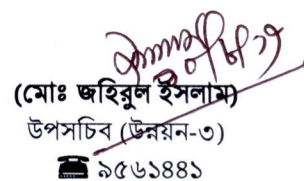 (মোঃ জহিরুল ইসলাম)
উপসচিব (উন্নয়ন-৩)
☎ ৯৫৬১৪৪১